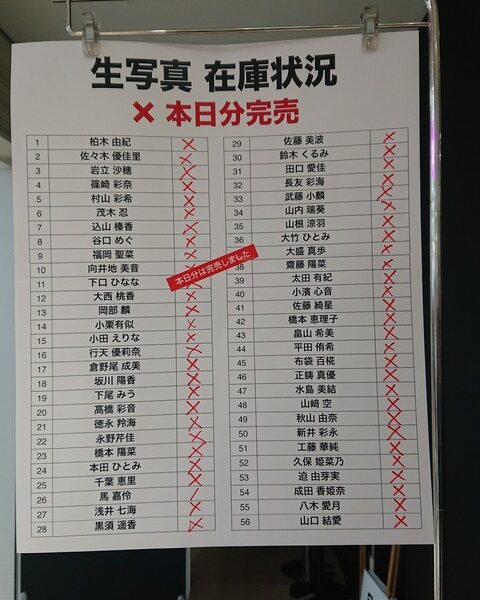 生写真 在庫状況
× 本日分完売
1 柏木 由紀 ×
2 佐々木 優佳里 ×
3 岩立 沙穂 ×
4 篠崎 彩奈 ×
5 村山 彩希 ×
6 茂木 忍 ×
7 込山 榛香 ×
8 谷口 めぐ ×
9 福岡 聖菜 ×
10 向井地 美音 ×
11 下口 ひなな ×
12 大西 桃香 ×
13 岡部 麟 ×
14 小栗有似 ×
15 小田 えりな ×
16 行天 優莉奈 ×
17 倉野尾 成美 ×
18 坂川 陽香 ×
19 下尾 みう ×
20 髙橋 彩音 ×
21 徳永 羚海 ×
22 永野芹佳 ×
23 橋本 陽菜 ×
24 本田 ひとみ ×
25 千葉 恵里 ×
26 馬 嘉伶 ×
27 浅井 七海 ×
28 黒須 遥香 ×
29 佐藤 美波 ×
30 鈴木 くるみ ×
31 田口 愛佳 ×
32 長友 彩海 ×
33 武藤 小麟 ×
34 山内 瑞葵 ×
35 山根 涼羽 ×
36 大竹 ひとみ ×
大盛 真歩 ×
38 齋藤 陽菜 ×
39 太田 有紀 ×
40 小濱 心音 ×
41 佐藤 綺星 ×
42 橋本 恵理子 ×
43 畠山 希美 ×
44 平田 侑希 ×
45 布袋 百椛 ×
46 正鋳 真優 ×
47 水島 美結 ×
48 山﨑 空 ×
49 秋山 由奈 ×
50 新井 彩永 ×
51 工藤 華純 ×
52 久保 姫菜乃 ×
53 迫 由芽実 ×
54 成田 香姫奈 ×
55 八木 愛月 ×
56 山口 結愛 ×
本日分は完売しました